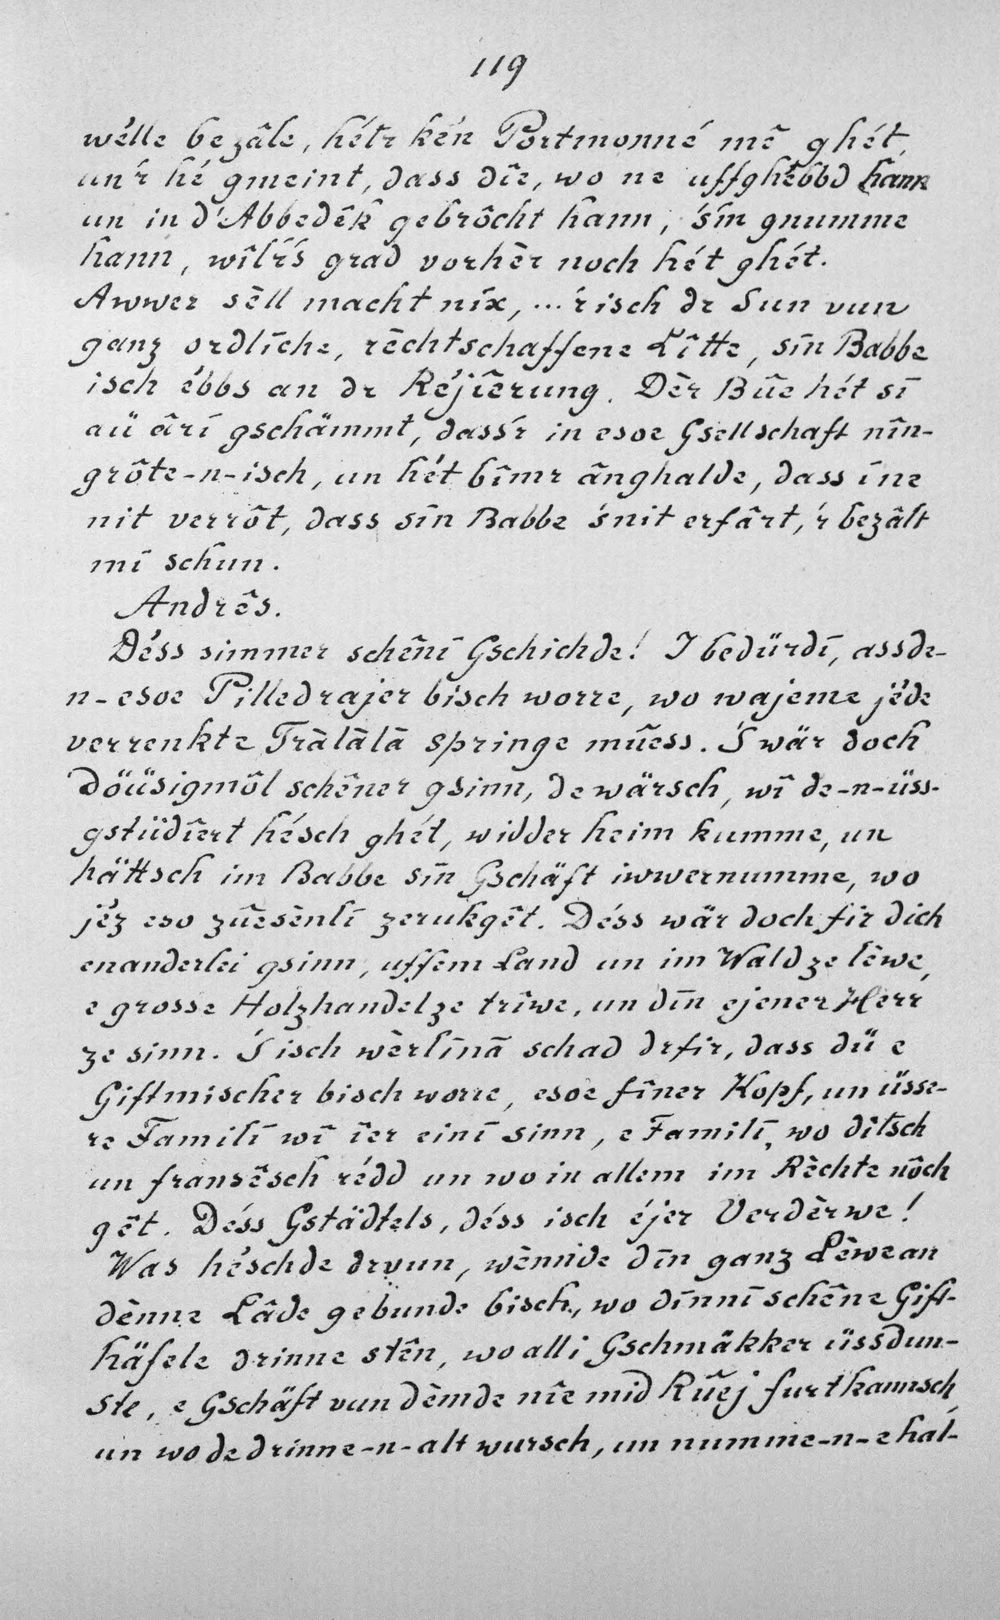 119
wélle bezâle, hétr kén Portmonné mê ghét,
un'r hé gmeint, dass dîe, wo ne uffghebbd hann
un in d'Abbedêk gebrôcht hann, 'sîn gnumme
hann, wîlr's grad vorhèr noch hét ghét.
Awwer sèll macht nix, ... 'r isch dr Sun vun
ganz ordlîche, rèchtschaffene Lîtte, sîn Babbe
isch ébbs an dr Réjîerung. Dèr Bûe hét sî
aü ârî gschämmt, dass'r in esoe Gsellschaft nîn-
grôte-n-isch, un hét bîmr ânghalde, dass îne
nit verrôt, dass sîn Babbe 'snit erfârt, 'r bezâlt
mî schun.
Andrês.
Déss simmer schênî Gschichde! I bedürdî, assde-
n-esoe Pilledrajer bisch worre, wo wajeme jéde
verrenkte Tràlàlà springe mûess. 'S wär doch
döüsigmôl schêner gsinn, de wärsch, wî de-n-üss-
gstüdîert hésch ghét, widder heim kumme, un
hättsch im Babbe sîn Gschäft iwwernumme, wo
jéz eso zûesènlî zerukgêt. Déss wär doch fir dich
enanderlei gsinn, uffem Land un im Wald ze lêwe,
e grosse Holzhandel ze trîwe, un dîn ejener Herr
ze sinn. 'S isch wèrlînâ schad drfir, dass dü e
Giftmischer bisch worre, esoe fîner Kopf, un üsse-
re Familî wî îer einî sinn, e Familî, wo ditsch
un fransêsch rédd un wo in allem im Rèchte nôch
gêt. Déss Gstädtels, déss isch éjer Verdèrwe!
Was héschde drvun, wènnide dîn ganz Lêwe an
dènne Lâde gebunde bisch, wo dînnî schêne Gift-
häfele drinne stên, wo alli Gschmäkker üssdun-
ste, e Gschäft vun dèmde nîe mid Rûej furt kannsch,
un wo de drinne-n-alt wursch, un numme-n-e hal-